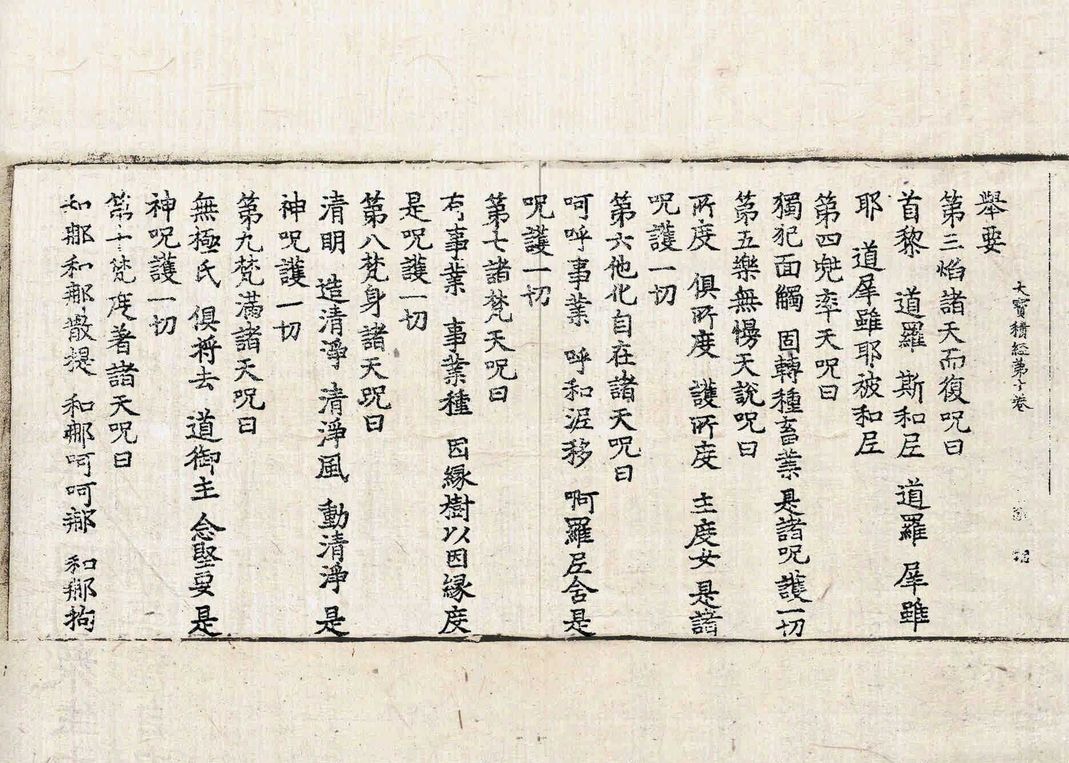 大寶積經第十卷
舉要
第三焰諸天而復呪曰
首黎 道羅 斯和𡰱 道羅 犀雖
耶 道犀雖耶被和𡰱
第四兜率天呪曰
獨犯面觸 固轉種畜業 是諸呪護一切
第五樂無慢天說呪曰
所度 俱所度 護所度 主度女 是諸
呪護一切
第六他化自在諸天呪曰
呵呼事業 呼和泥移 啊羅𡰱舍是
呪護一切
第七諸梵天呪曰
有事業 事業種 因緣樹以因緣度
是呪護一切
第八梵身諸天呪曰
清明 造清淨 清淨風 動清淨 是
神呪護一切
第九梵滿諸天呪曰
無極氏 俱将去 道御主 念堅要 是
神呪護一切
第十梵度著諸天呪曰
和那和那散提 和那呵呵那 和那拘